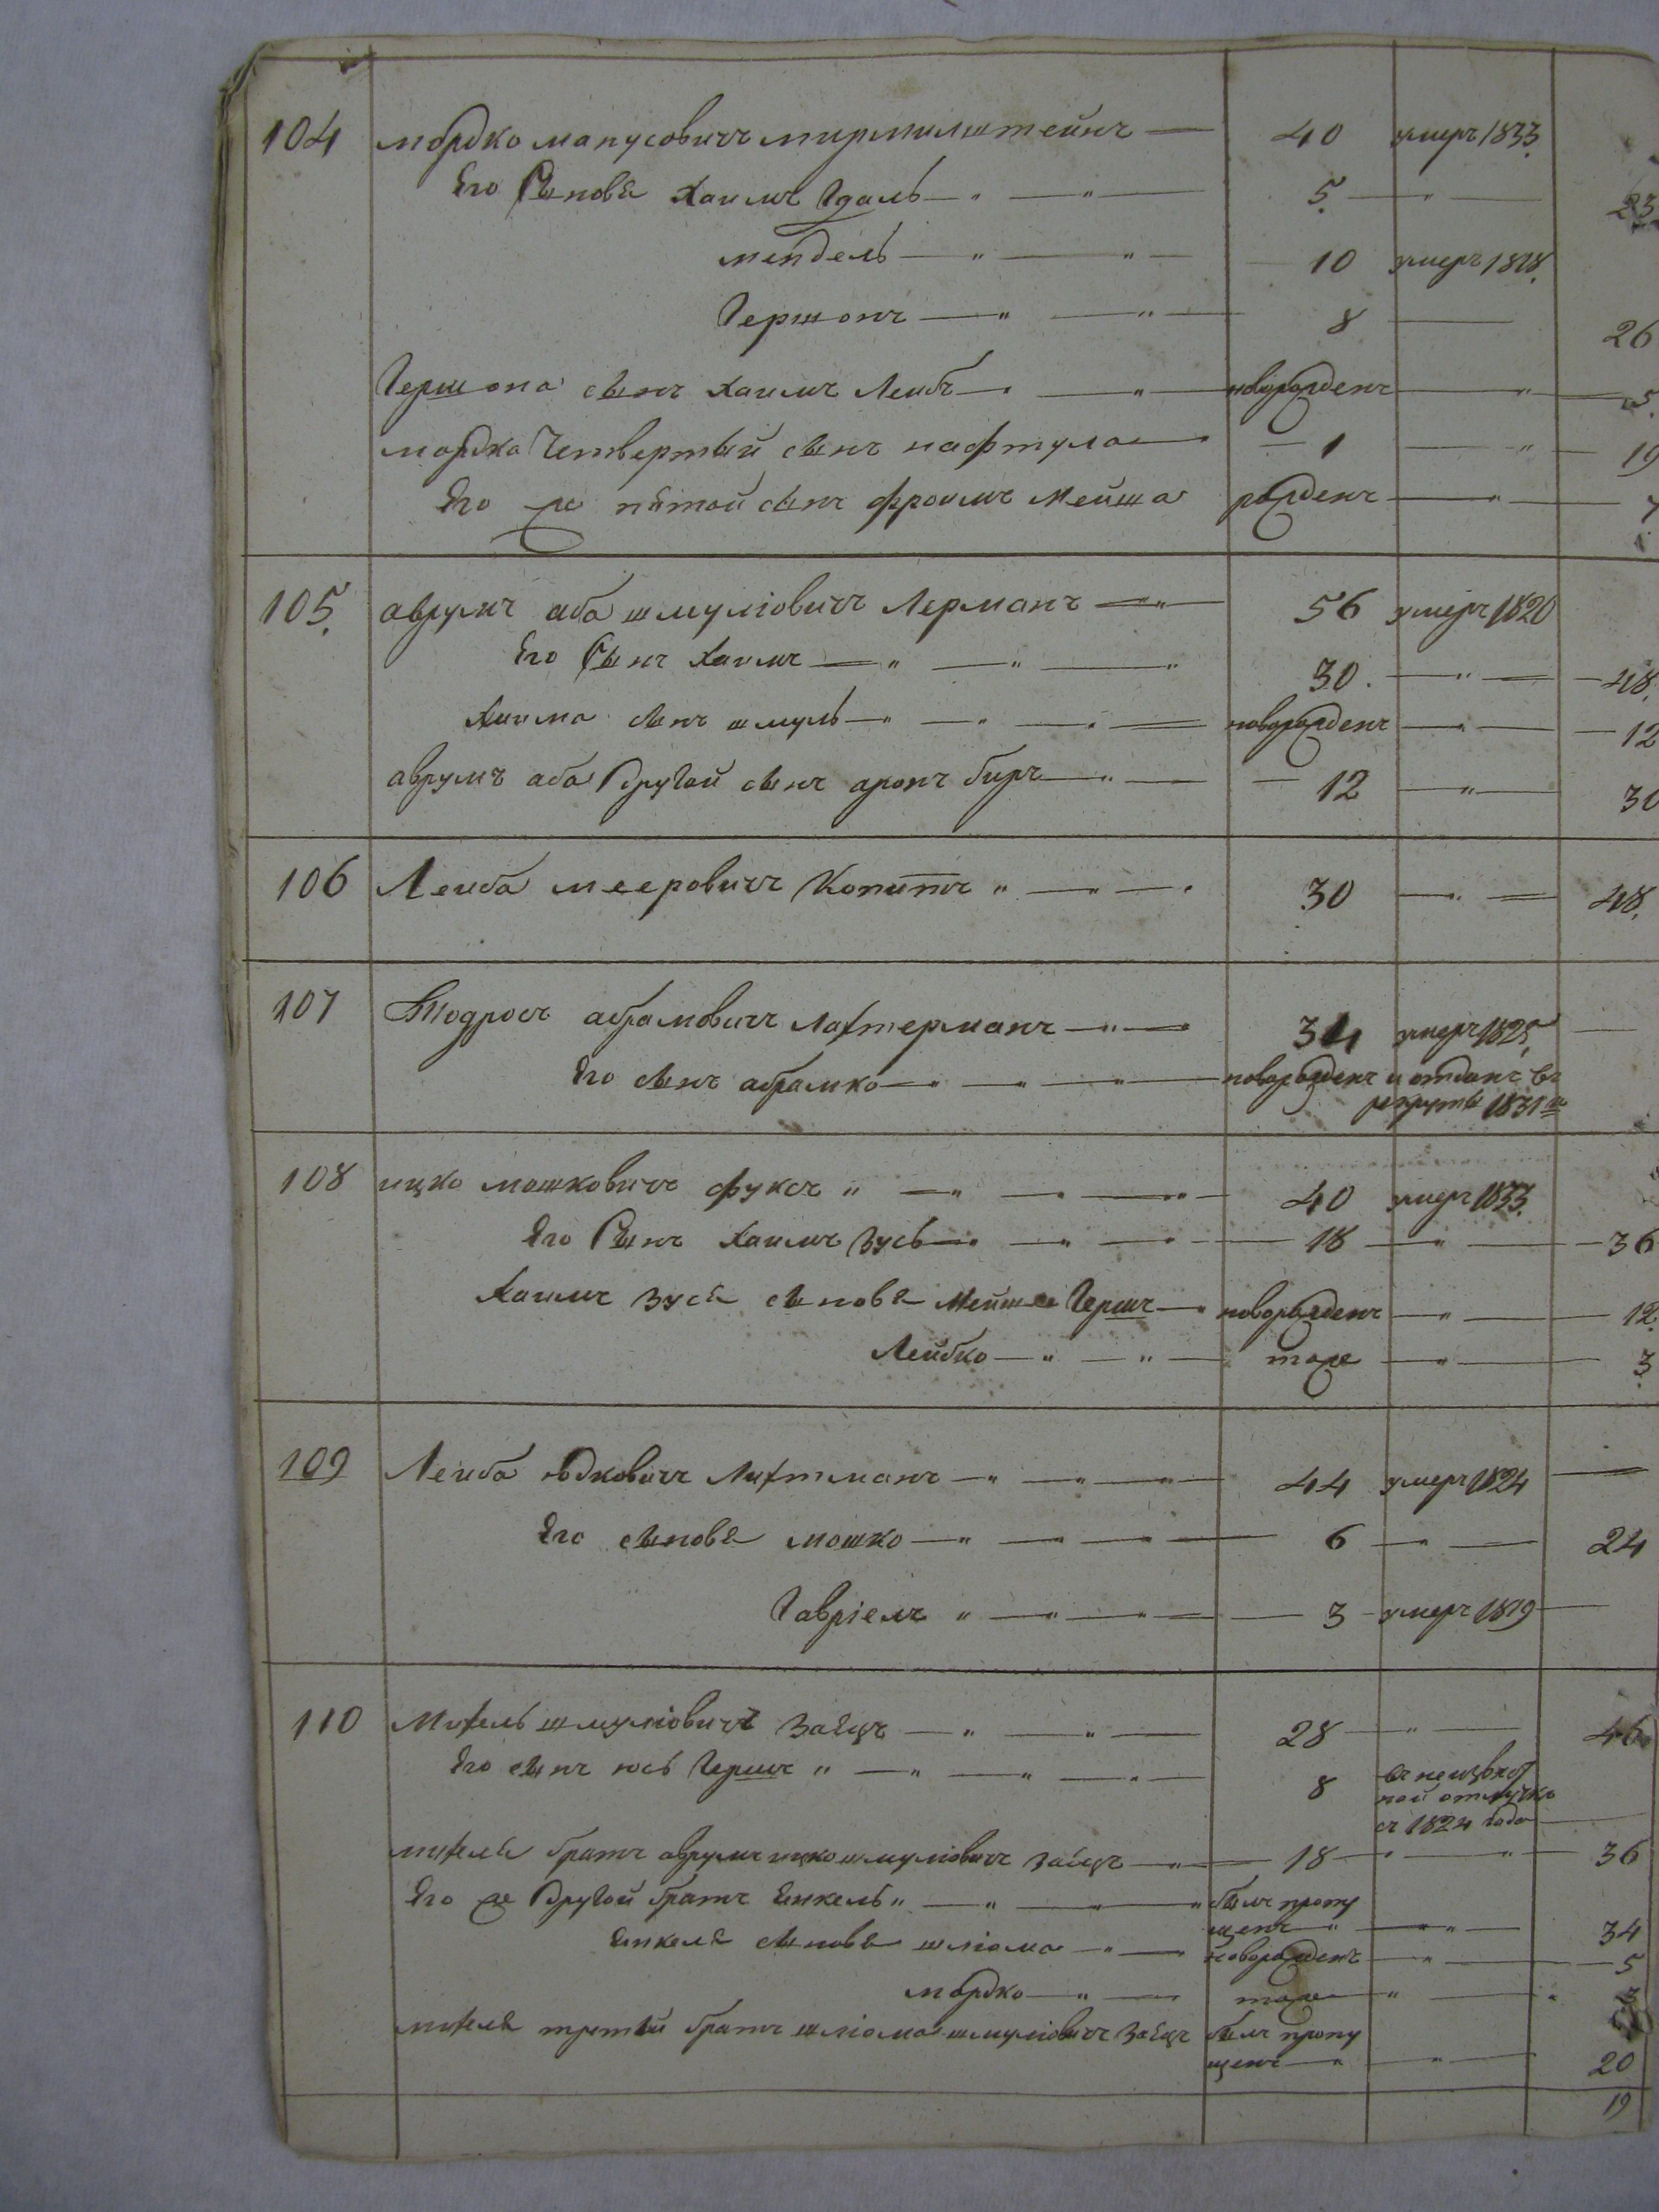 104 мордко манусовичъ мирмилштейнъ 40 умеръ 1833.
Его Сыновя Хаимъ Идаль 5. 23
мендель 10 умеръ 1818.
Гершонъ 8 26
Гершона сынъ Хаимъ Лейбъ новорожденъ 15.
мордка Четвертый сынъ нафтула 1 19
Его же пятой сынъ фроимъ Мейша рожденъ 7
105. аврумъ аба шмуліовичъ Лерманъ 56 умеръ 1820
Его Сынъ Хаимъ 30. 48.
Хаима сынъ шмуль новорожденъ 12
аврумъ аба Другой сынъ аронъ биръ 12 30
106 Леиба мееровичъ Копитъ 30 48.
107 Тодросъ абрамовичъ лахтерманъ 34 умеръ 1825,
Его сынъ абрамко новорожденъ и отданъ въ
рекруты 1831 м
108 ицко мошковичъ фуксъ 40 умеръ 1833.
Его Сынъ Хаимъ Зусь 18 36
Хаимъ Зуся сыновя Мейше Гершъ новорожденъ 12.
Лейбко тоже 3
109 Леиба юдковичъ Лихтманъ 44 умеръ 1824
Его сыновя мошко 6 24
Гавріелъ 3 умеръ 1819
110 Михель шмуліовичъ Заецъ 28 46
Его сынъ юсь Гершъ 8 въ неизвѣст
ной отлучкѣ
съ 1824 года
михеля братъ аврумъ ицко шмуліовичъ Заецъ 18 36
Его же Другой братъ Енкель былъ пропу
щенъ 34
Енкеля сыновя шліома новорожденъ 5
мордко тоже 3
михеля третій братъ шліома шмуліовичъ Заецъ былъ пропу
щенъ 20
19